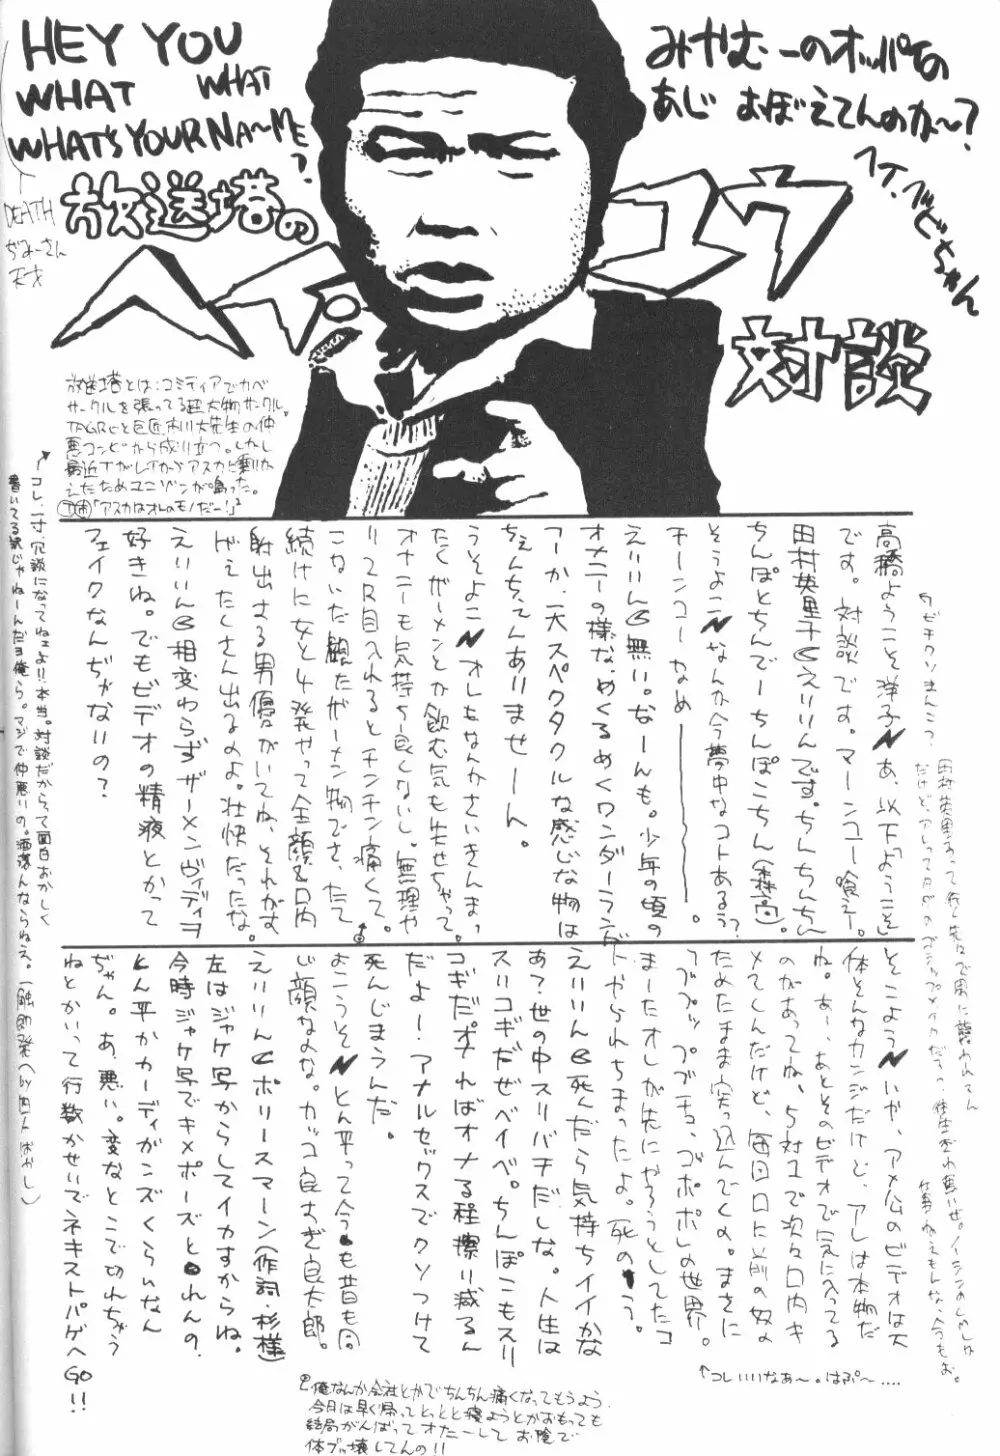 HEY YOU
WHAT WHAT
WHAT'S YOUR NA〜ME?
DEATH
ぢみーさん
天才
みやむーのオッパイの
あじ おぼえてんのか〜?
放送塔の
ヘイ・ユウ
対談
放送塔とは:コミティアでカベ
サークルを張ってる超大物サークル。
と巨匠 市川大先生の仲
悪コンビから成り立つ。しかし
最近Tがレイからアスカに乗りか
えたためユニゾンが鳴った。
「アスカはオレのモノだー!」
高橋ようこそ洋子あ、以下「ようこそ」
です。対談です。マーンコー喰え。
田村英里子えりりんです。ちんちんちん
ちんぽとちんでーちんぽこちん(森高)。
そうよこなんか今夢中なコトあるぅ?
チーンコーなめー。
えりりん無い。なーんも。少年の頃の
オナニーの様なめくるめくワンダーランド
つーか、一大スペクタクルな感じな物は
ちぇんちぇんありませーん。
うそよこオレもなんかさいきんまっ
たくザーメンとか飲む気も失せちゃって。
オナニーも気持ち良くないし。無理や
り2回目入れるとチンチン痛くて。
こないだ観たザーメン物でさ、たて
続けに女と4発やって全顔&口内
射出さる男優がいてね、それがす
げえたくさん出るのよ。壮快だったな。
えりりん相変わらずザーメンヴィディヲ
好きね。でもビデオの精液とかって
フェイクなんぢゃないの?
とそこようこいや、アメ公のビデオは大
体そんなカンジだけど、アレは本物だ
ね。あー、あとそのビデオで気に入ってる
のがあってね、5対1で次々口内キ
メてくんだけど、毎回口に前の奴の
ためたまま突っ込んでくの。まさに
プププッ ププチョ、ゴポポポの世界。
まーたオレが先にやろうとしてたコ
トやられちまったよ。死のーう。
えりりん死んだら気持ちイイかな
あ?世の中スリバチだしな。人生は
スリコギだぜベイベ。ちんぽこもスリ
コギだオナればオナる程擦り減るん
だよー。アナルセックスでクソつけて
死んじまうんだ。
よこうそとん平って今も昔も同
じ顔なのな。カッコ良すぎ良太郎。
えりりんポリースマーン(作詞・杉様)
左はジャケ写からしてイカすからね。
今時ジャケ写でキメポーズとれんの、
とん平かカーディガンズくらいなん
ぢゃん。あ、悪い。変なとこで切れちゃう
ねとかいって行数かせいでネキストパゲへGO!!
コレ、一寸、冗談になってねェよ!!本当。対談だからって面白おかしく
書いてる訳じゃねーんだヨ俺ら。マジで仲悪いの。洒落んならねえ。
↑コレいいなあ〜。はぷ〜....
俺なんか会社とかでちんちん痛くなってもうよう
今日は早く帰ってとっとと寝ようとかおもっても
結局がんばってオナーして お陰で
体ブッ壊してんの!!